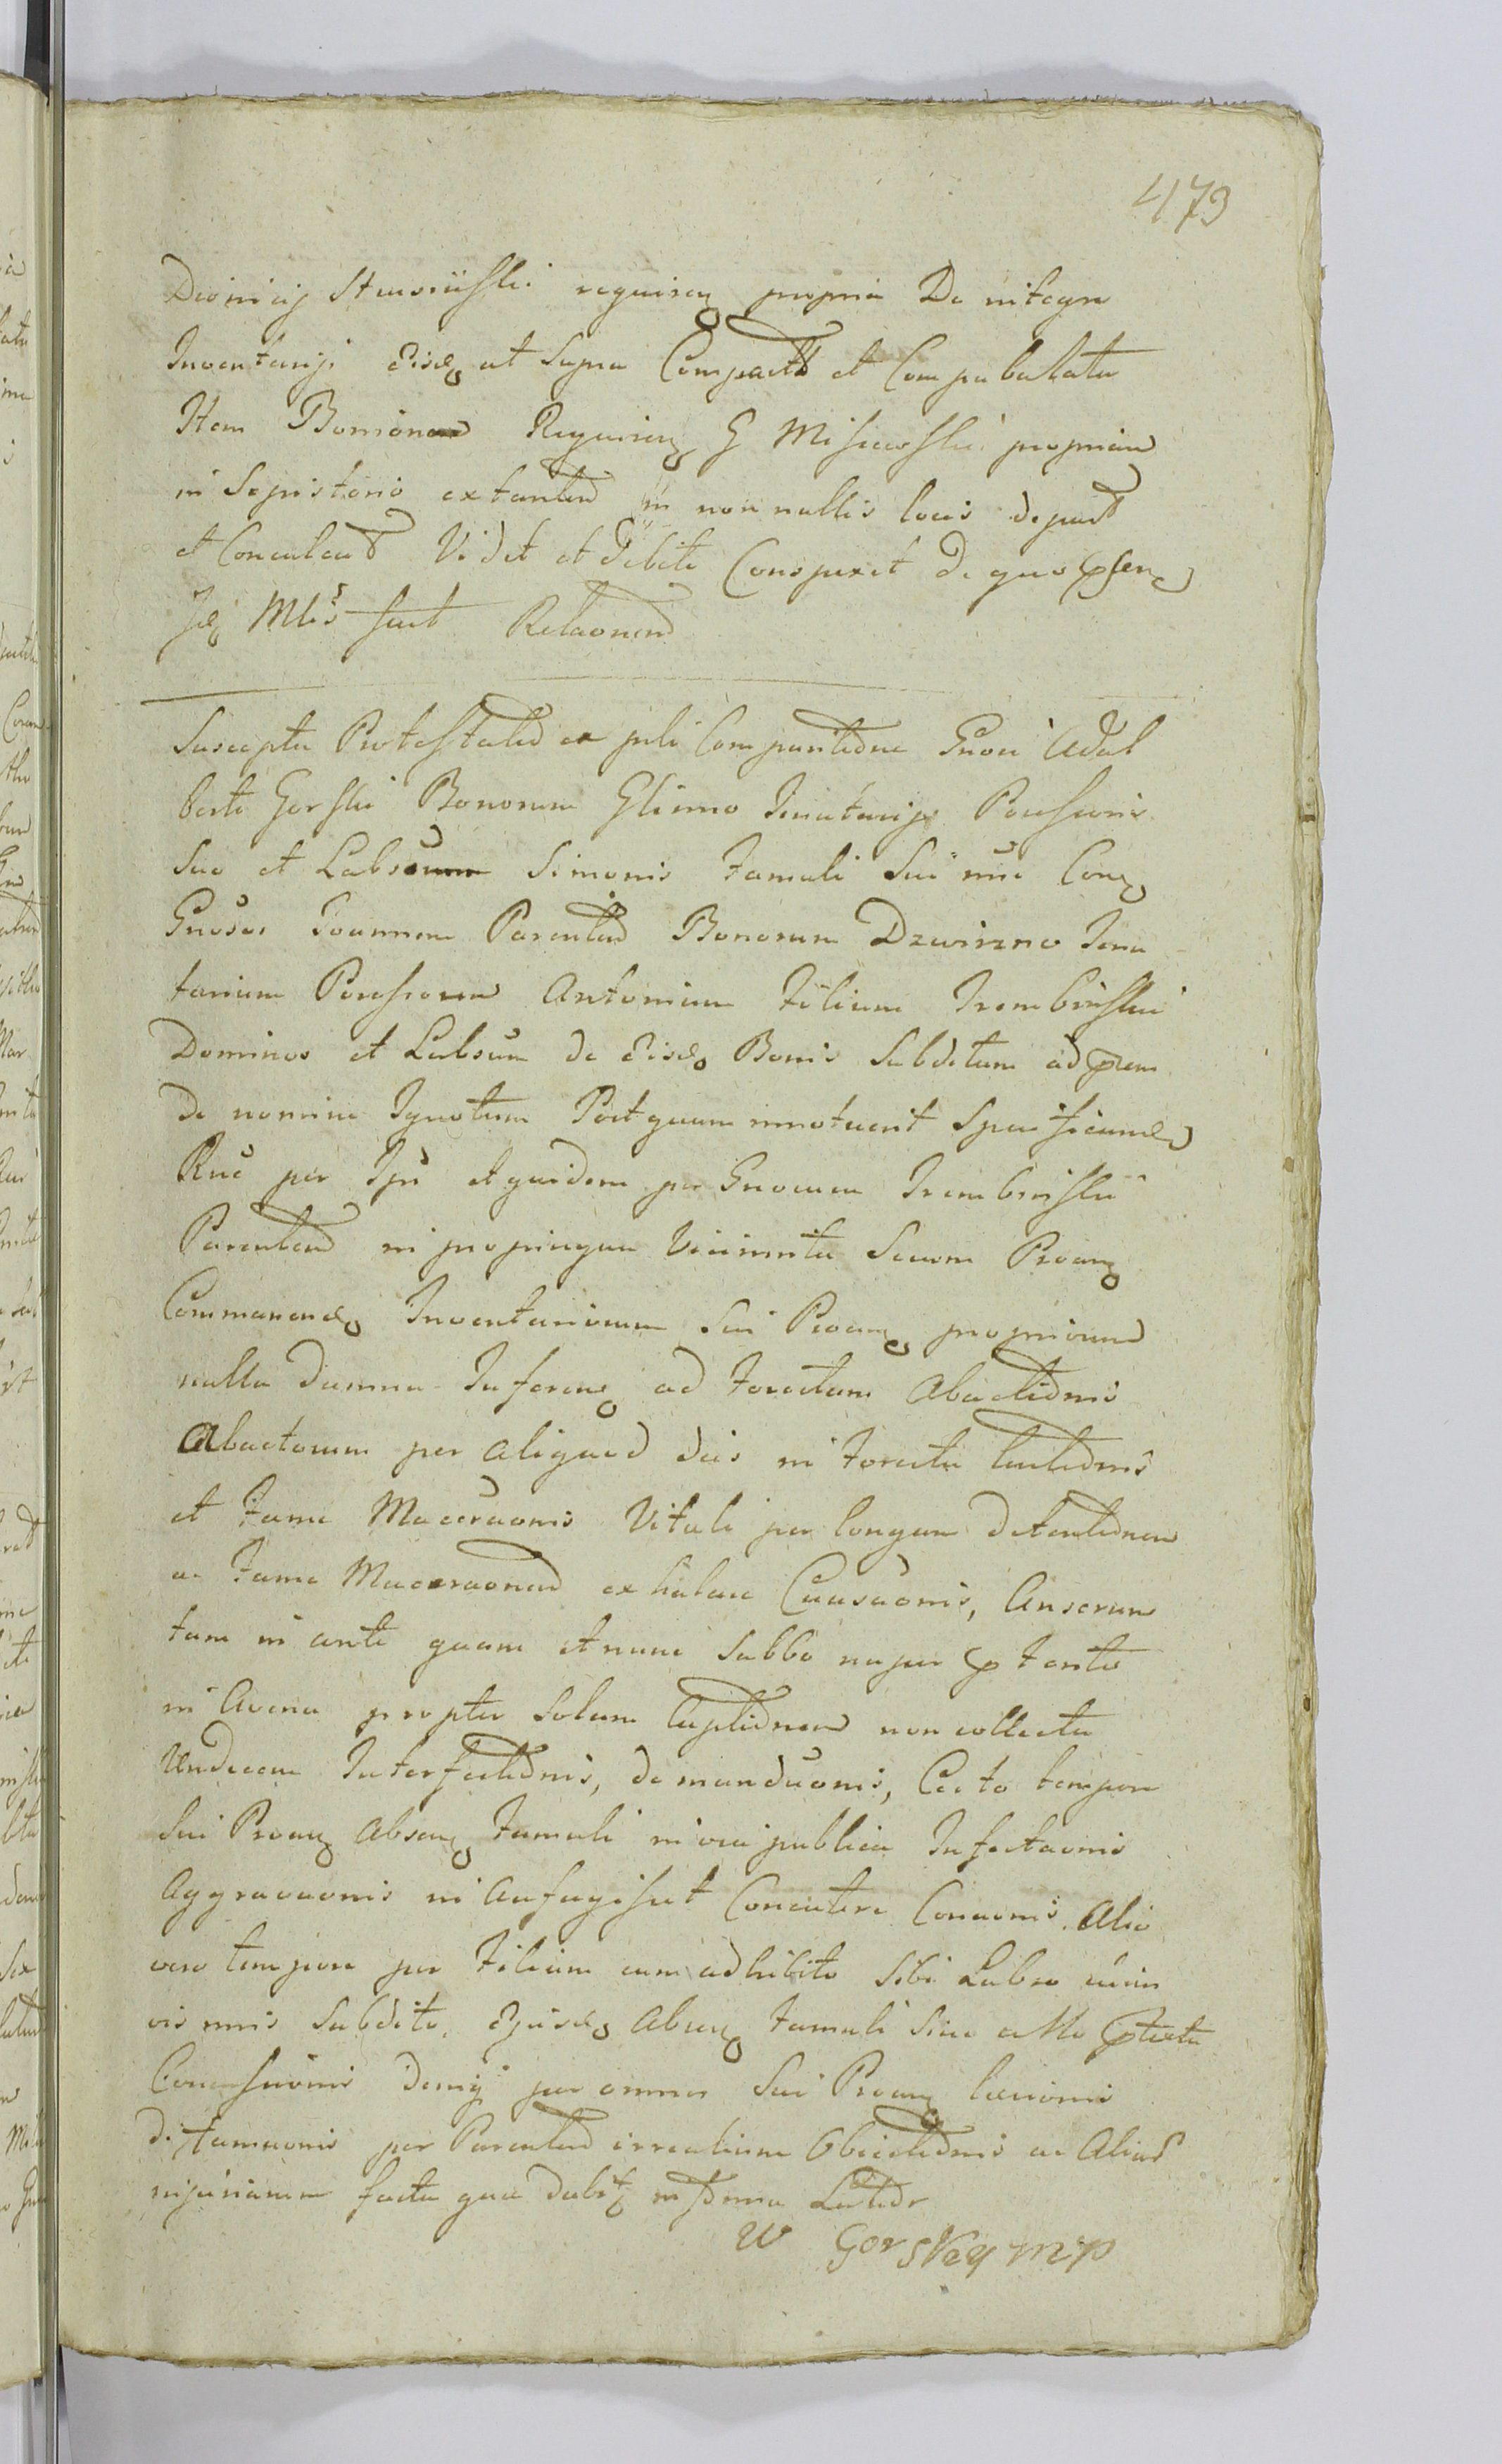 473
Dionisij requiren propria De integro
Inventarij Eisd ut Supra Compactt et Compabulata
Item Bonione Requiren G Misiewski propriam
in Sepistorio extanten in non nullis locis depast
et Conculcat Vidit et debite Conspexit De quo psen
Jd Mlis fecit Relaonem
Suscepta Protestatio ex pli Comparitione Gnosi Adal
berti Gorski Bonorum Glinno Tenutarij Possessoris
Suo et Labso Simonis Famuli Sui nne Con
Gnosos Joannem Parentem Bonorum Dzwirzno Tenu
tarium Possessorem Antonium Filium Trembinski
Dominos et Labsum de Eisd Bonis Subditum ad prem
de nomine Ignotum Postquam innotuerit Specificand
Rne per Ips et quidem per Gnosum Trembinski
Parentem in propinqua Vicinita Secum Proan
Commanend Inventariorum Sui Proan propriorum
nulla Damna Inferen ad Foretum Abactionis
Abactorum per aliquod dies in Foreta tentionis
et Fame Maceraonis Vituli per longam detentionem
ac Fame Maceraonem exhalare Causaonis, Anserum
tam in ante quam et nunc Sabbo nuper p terito
in Avena propter Solam Captionem non collecta
Undecem Interfectionis, de manduonis, Certo tempore
Sui Proan Absen Famuli in via publica Infestaonis
Aggravaonis ni Aufugisset Concutere Conaonis. Alio
vero tempore per Filium cum adhibito Sibi Labso
nnis Subdito. Ejusd Absen Famuli Sine ullo ptextu
Concussionis Deniq per omnes Sui Proan laesionis
diffamaonis per Parentem Obiectionis ac Alias
injuriarum facta qua dabit in Termino Latior
W Gorsky mp